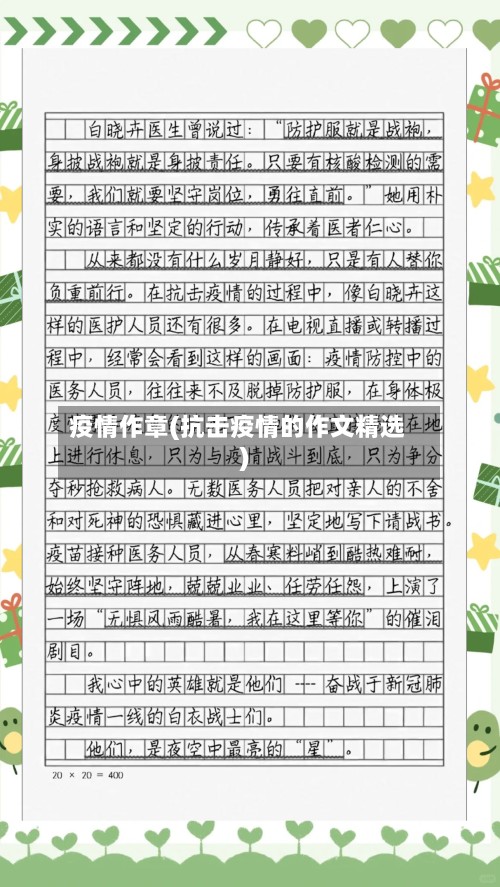 白晓卉医生曾说过：“防护服就是战袍，
身披战袍就是身披责任。只要有核酸检测的需
要，我们就要坚守岗位，勇往直前。”她用朴
实的语言和坚定的行动，传承着医者仁心。
从来都没有什么岁月静好，只是有人替你
负重前行。在抗击疫情的过程中，像白晓卉这
样的医护人员还有很多。在电视直播或转播过
程中，经常会看到这样的画面：疫情防控中的
医务人员，往往来不及脱掉防护服，在身体极
疫情作章(抗击疫情的作文精选
)
度
在地
上进行休息，只为与疫情战斗到底，只为争分
夺秒抢救病人。无数医务人员把对亲人的不舍
和对死神的恐惧藏进心里，坚定地写下请战书。
疫苗接种医务人员，从春寒料峭到酷热难耐，
始终坚守阵地，兢兢业业、任劳任怨，上演了
一场“无惧风雨酷暑，我在这里等你”的催泪
剧目。
我心中的英雄就是他们 ---- 奋战于新冠肺
炎疫情一线的白衣战士们。
他们，是夜空中最亮的“星”。
20 × 20 = 400